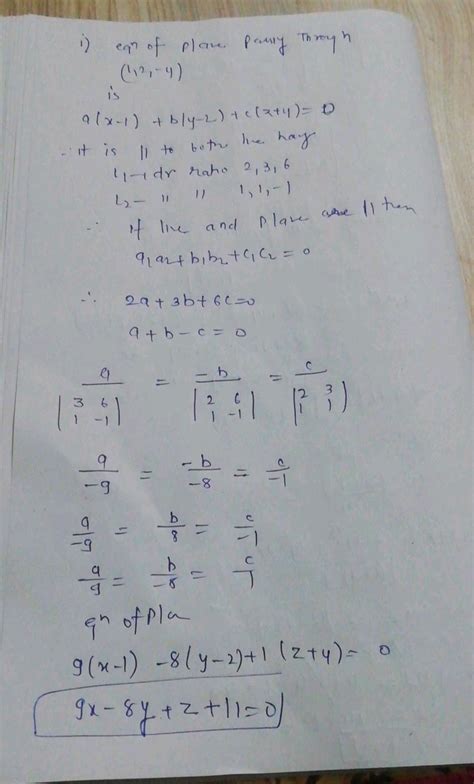 i) eqn of plane passing through
(1,2,-4)
is
a(x-1) + b(y-2) + c(z+4) = 0
∴ it is || to both line hav
L1 → dr ratio 2,3,6
L2 - " " 1,1,-1
∴ if line and plane are || then
a1a2+b1b2+c1c2 = 0
∴ 2a + 3b + 6c = 0
a + b - c = 0
a = -b = c
|3 6| |2 6| |2 3|
|1 -1| |1 -1| |1 1|
a/-9 = -b/-8 = c/-1
a/-9 = b/8 = c/-1
a/9 = b/-8 = c/1
qn of pla
9(x-1) -8(y-2)+1(z+4) = 0
9x-8y+z+11=0